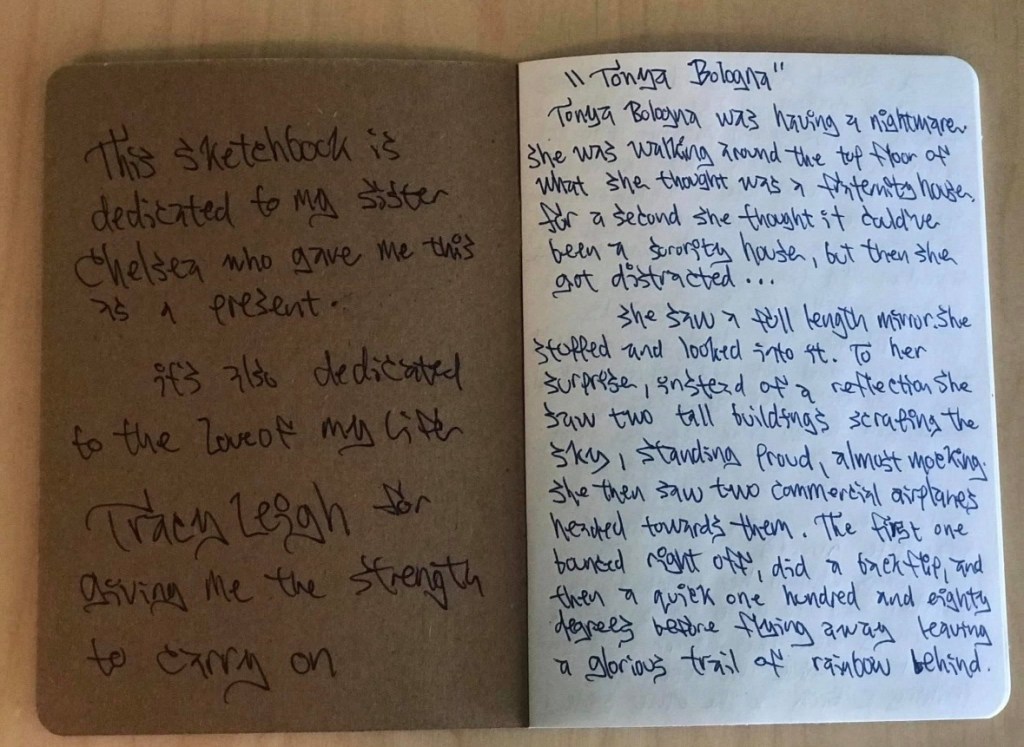 This sketchbook is
dedicated to my sister
Chelsea who gave me this
as a present.
it's also dedicated
to the love of my life
Tracy Leigh for
giving me the strength
to carry on
"Tonya Bologna"
Tonya Bologna was having a nightmare.
She was walking around the top floor of
what she thought was a fraternity house.
for a second she thought it could've
been a sorority house, but then she
got distracted...
She saw a full length mirror. She
stopped and looked into it. To her
surprise, instead of a reflection she
saw two tall buildings scraping the
sky, standing proud, almost mocking.
She then saw two commercial airplanes
headed towards them. The first one
bounced right off, did a backflip, and
then a quick one hundred and eighty
degrees before flying away leaving
a glorious trail of rainbow behind.